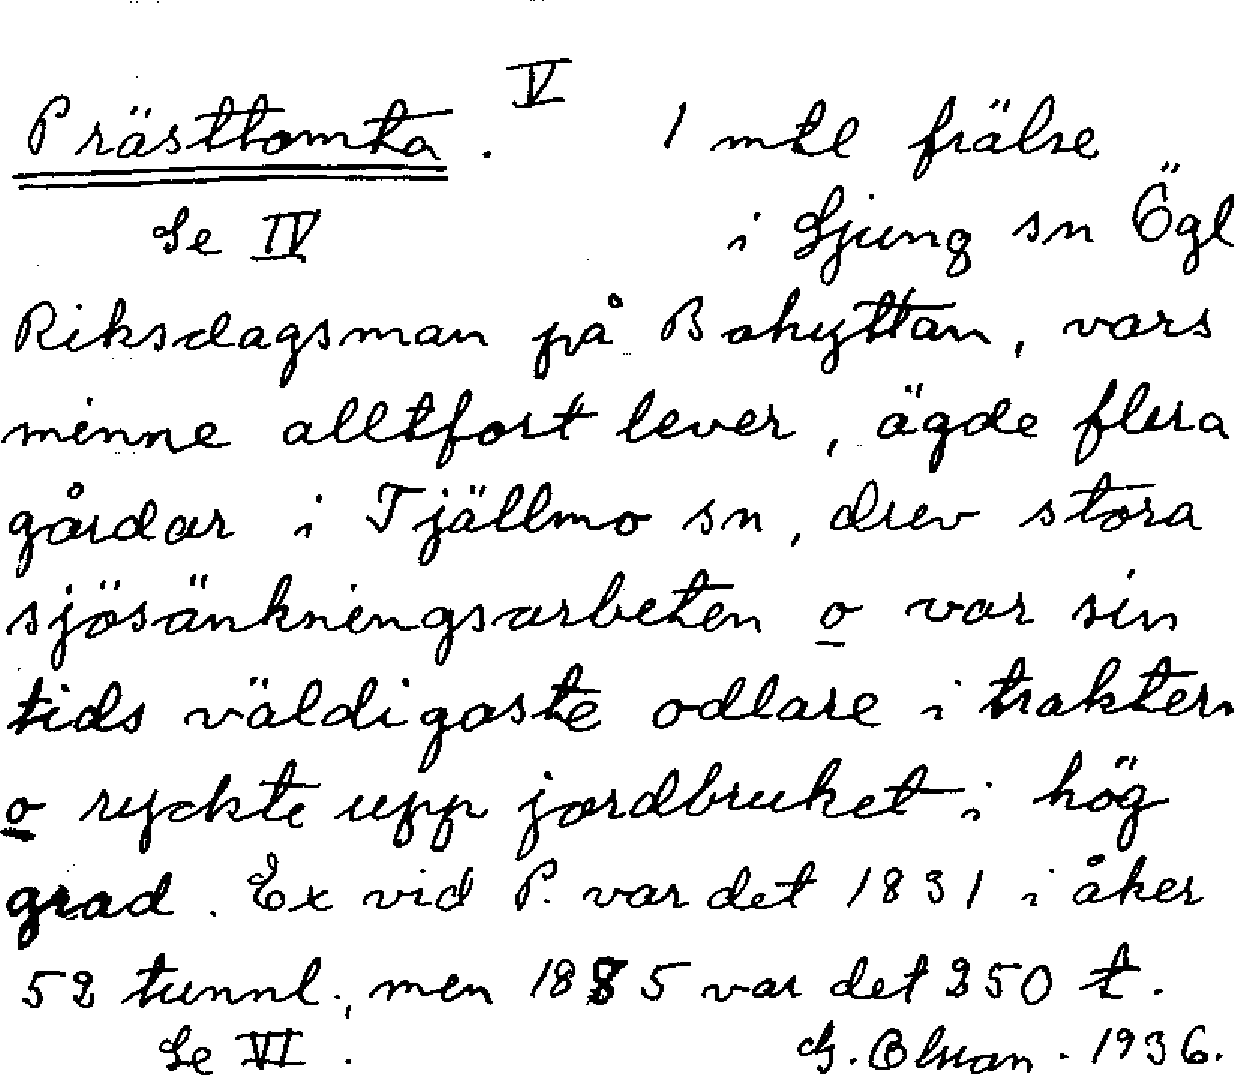 V
Prästtomta. 1 mtl frälse
Se IV i Ljung sn Ögl
Riksdagsman på Bohyttan, vars
minne alltfort lever, ägde flera
gårdar i Tjällmo sn, drev stora
sjösänkningsarbeten o var sin
tids väldigaste odlare i trakten
o ryckte upp jordbruket i hög
grad. Ex vid P. var det 1831 i åker
52 tunnl., men 1885 var det 250 t.
Se VI. G. Olsson. 1936.